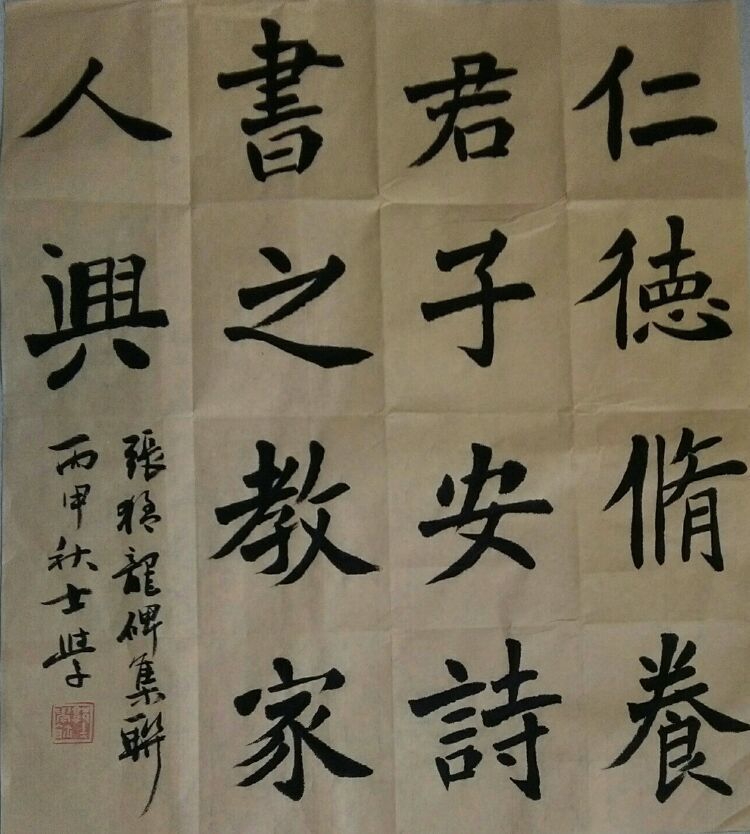 仁德脩養
君子安詩
書之教家
人興
張猛龍碑集聯
丙申秋士學